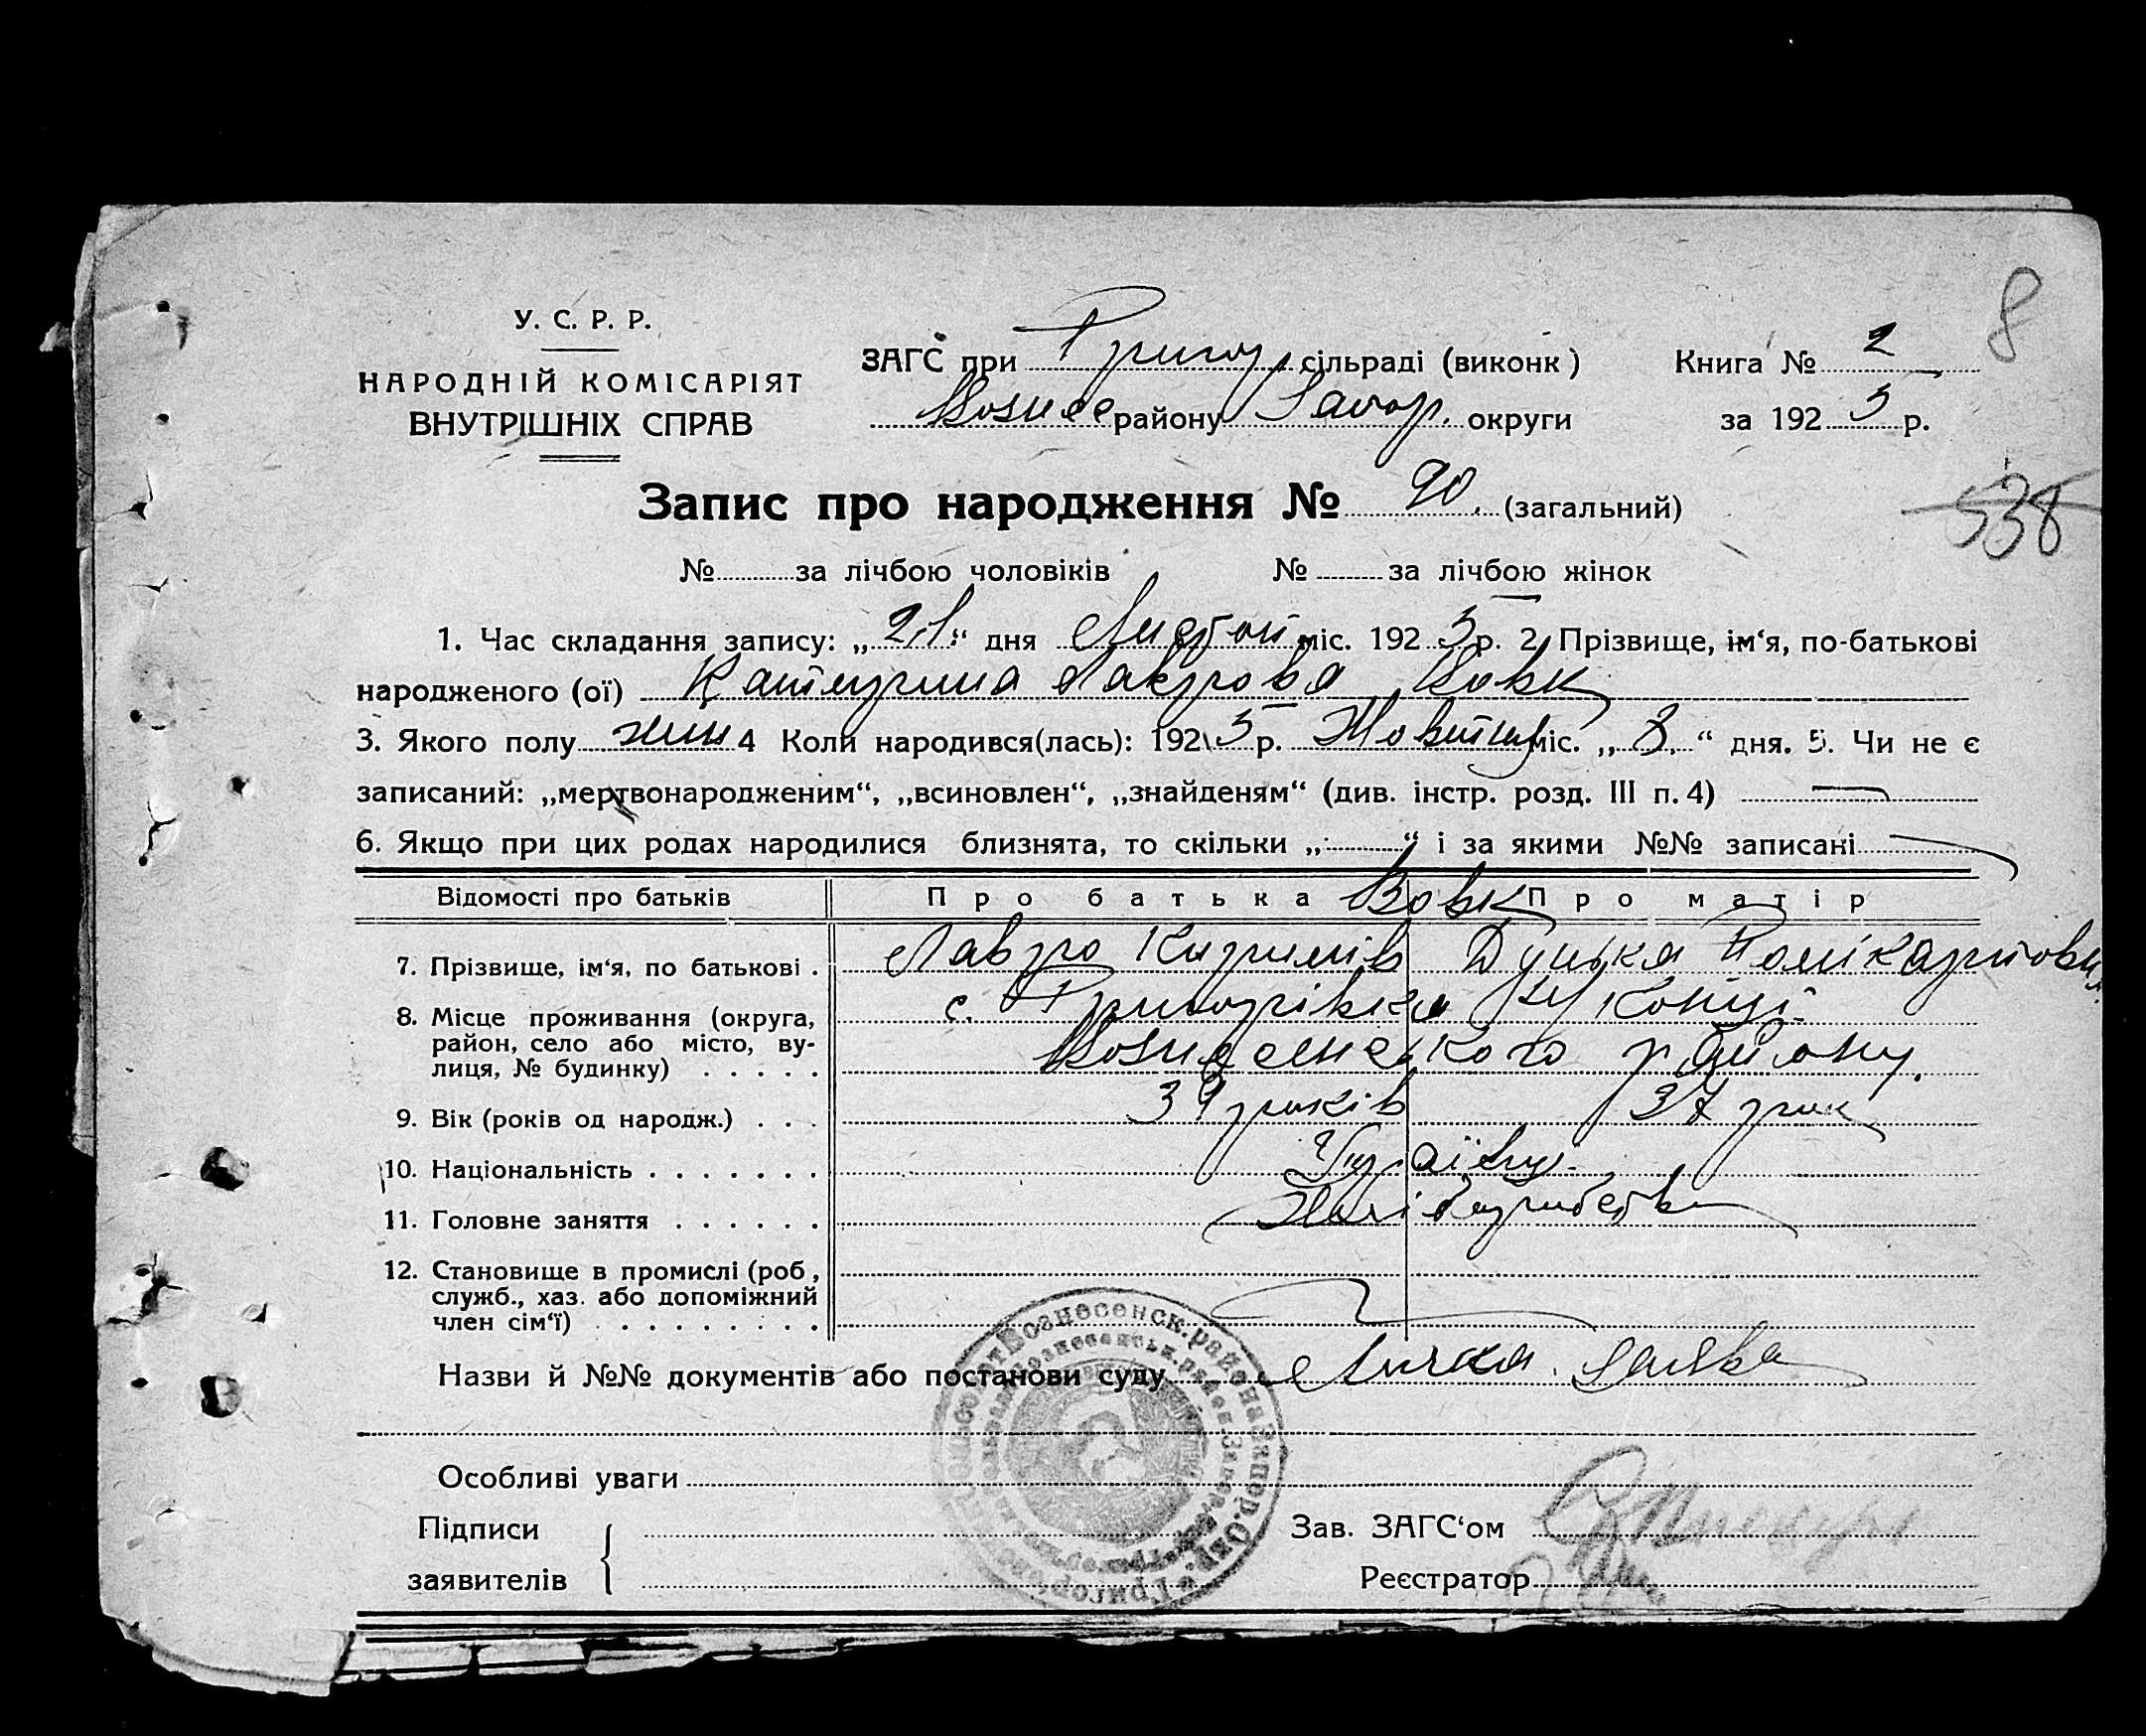 8
У. С. Р. Р.
НАРОДНІЙ КОМІСАРІЯТ
ВНУТРІШНІХ СПРАВ
ЗАГС при Григор. сільраді (виконк)
Книга № 2
Вознес району Запор. округи
за 1925 р.
Запис про народження № 90. (загальний)
538
№ за лічбою чоловіків № за лічбою жінок
1. Час складання запису: „21“ дня міс. 1925 р. 2. Прізвище, ім‘я, по-батькові
народженого (ої) Катерина Лаврова Вовк
3. Якого полу жін 4 Коли народився(лась): 1925 р. Жовтня міс. „8.“ дня. 5. Чи не є
записаний: „мертвонародженим“, „всиновлен“, „знайденям“ (див. інстр. розд. III п. 4) —
6. Якщо при цих родах народилися близнята, то скільки „ “ і за якими №№ записані
Відомості про батьків Про батька Вовк Про матір
7. Прізвище, ім‘я, по батькові . Лавро Кирилів
8. Місце проживання (округа, с. Григорівка
район, село або місто, ву- Вознесенського району.
лиця, № будинку) . . . . .
9. Вік (років од народж.) . . . 39 років 37 рок
10. Національність . . . . . . . Україну.
11. Головне заняття . . . . . . Хліборобство
12. Становище в промислі (роб.,
служб., хаз. або допоміжний
член сім‘ї) . . . . . . . . .
Назви й №№ документів або постанови суду заява
Особливі уваги
Підписи
заявителів
Зав. ЗАГС‘ом
Реєстратор
Вознесенск. района Запор. Окр.